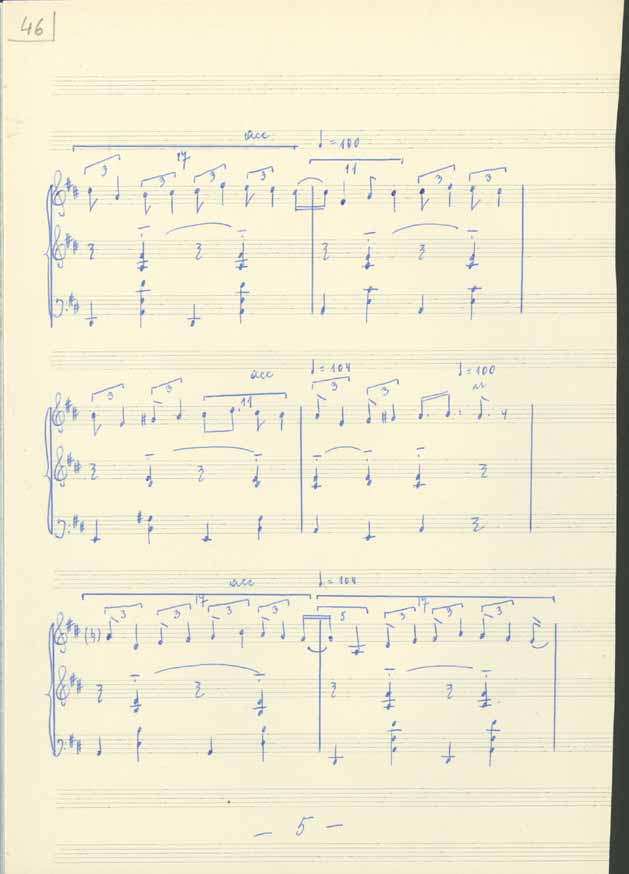 46
acc ♩ = 100
17 11
3 3 3 3 3 3
acc ♩ = 104 ♩ = 100
3 3 11 3 3
acc ♩ = 104
17 17
3 3 3 3 5 3 3 3
- 5 -